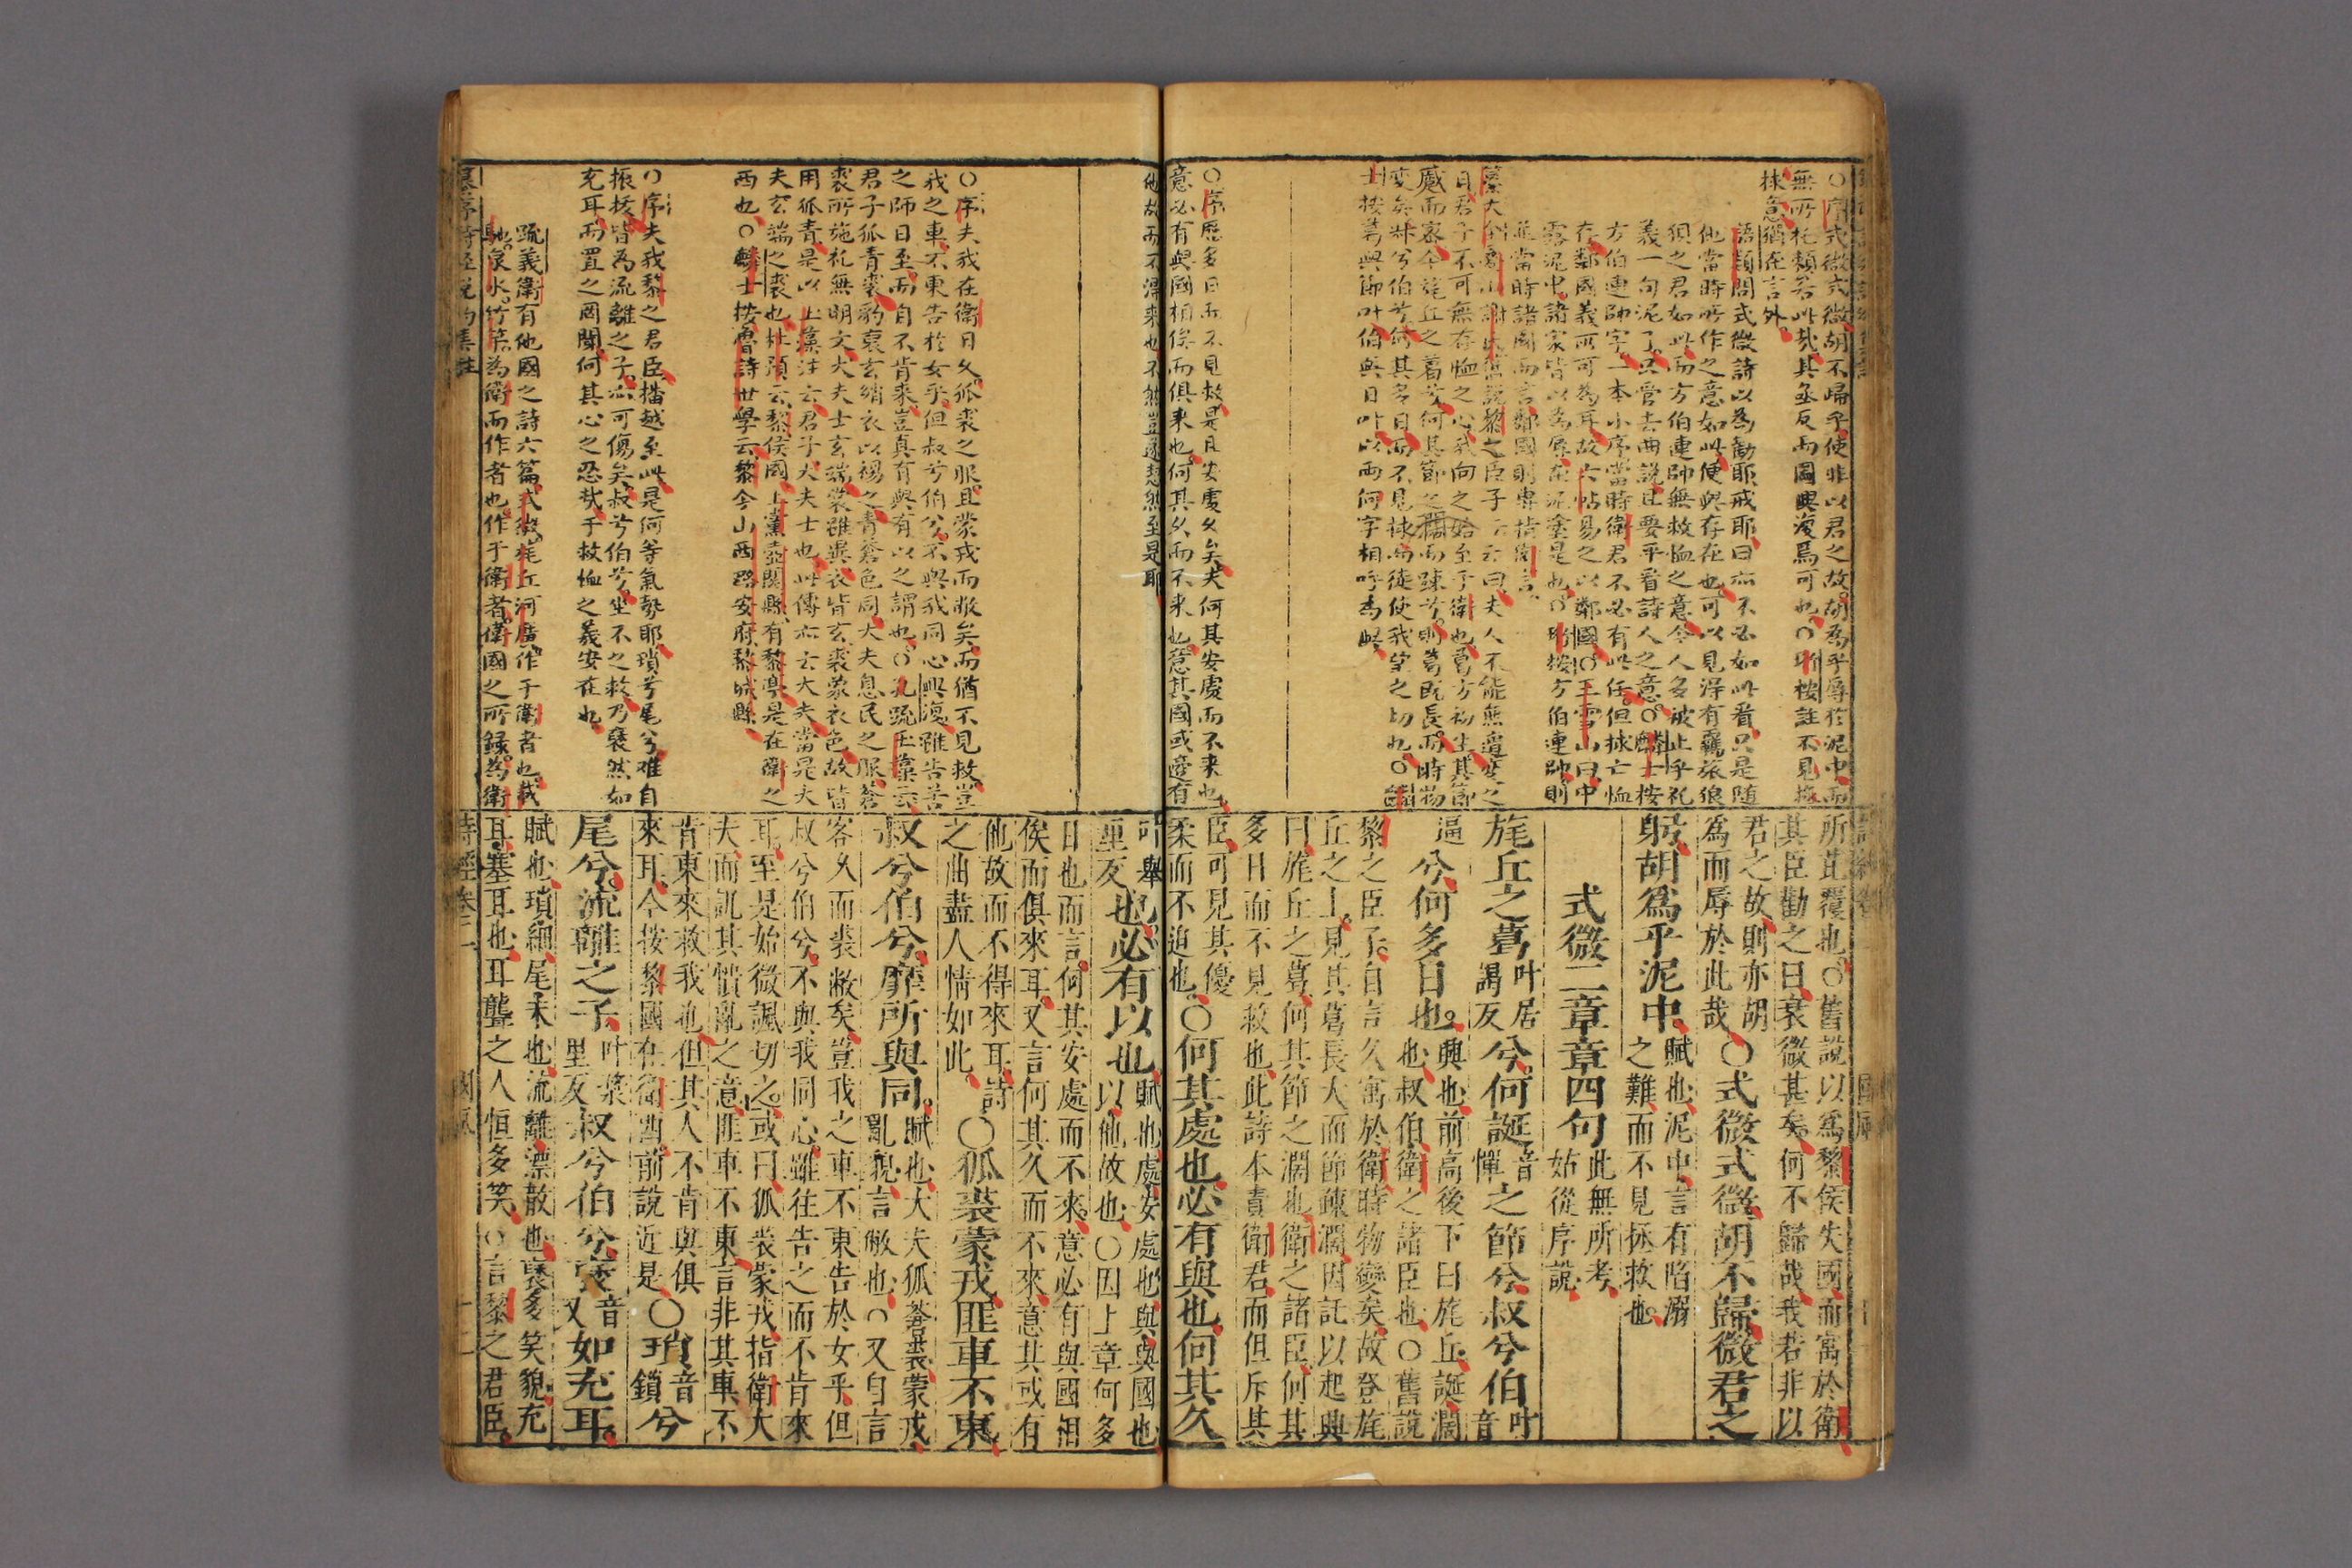 ○序式微式微胡不歸乎使非以君之故胡爲乎辱於泥中而
無所托賴若此哉其亟反而圖興復焉可也○
拯意猶在言外
語類問式微詩以爲勸耶戒耶曰亦不必如此看只是隨
他當時所作之意如此便與存在也可以見得有羈旅狼
狽之君如此而方伯連帥無救恤之意今人多被止乎礼
義一句泥了只管去曲說且要平看詩人之意○麟士按
方伯連帥字一本小序當時衛君不必有此任但救亡恤
存鄰國義所可爲耳故六帖易之以鄰國○王雪山曰中
露泥中諸家皆以爲辱在泥塗是也○按方伯連帥則
當時諸國而言鄰國則專指衛言
黎之臣子云曰夫人不能無遭變之
日君子不可無存恤之心我向之始至于衛也葛方初生其節
蹙而密今旄丘之葛兮何其節之闊而踈兮則葛既長而時物
変矣叔兮伯兮何其多日而不見拯而徒使我望之切也○麟
士按葛與節叶伯與日叶以兩何字相呼爲眽
○序歷多日而不見救是且安處久矣夫何其安處而不來也
意必有與國相俟而俱來也何其久而不來也意其國或邊有
所芘覆也○舊說以爲黎侯失國而寓於衛
其臣勸之曰衰微甚矣何不歸哉我若非以
君之故則亦胡
爲而辱於此哉○式微式微胡不歸微君之
躬胡爲乎泥中賦也泥中言有陷溺
之難而不見拯救也
式微二章章四句此無所考
姑從序說
旄丘之葛叶居
謁反兮何誕音
憚之節兮叔兮伯叶
音
逼兮何多日也興也前高後下曰旄丘誕濶
也叔伯衛之諸臣也○舊說
黎之臣子自言久寓於衛時物變矣故登旄
丘之上見其葛長大而節踈濶因託以起興
曰旄丘之葛何其節之濶也衛之諸臣何其
多日而不見救也此詩本責衛君而但斥其
臣可見其優
柔而不迫也○何其處也必有與也何其久
他故而不得來也不然豈遂恝然至是耶
○序夫我在衛日久狐裘之服且蒙戎而敝矣而猶不見救豈
我之車不東告於女乎但叔兮伯兮不與我同心興復雖告善
之師日至而自不肯來豈真有與有以之謂也○孔疏玉藻云
君子狐青裘豹褎玄綃衣以裼之青蒼色同大夫息民之服蒼
裘所施礼無明文大夫士玄端裘雖異衣皆玄裘象衣色故皆
用狐青是以玉藻注云君子大夫士也此傳亦云大夫當是大
夫玄端之裘也杜預云黎侯國上黨壺關縣有黎亭是在衛之
西也○麟士按魯詩世學云黎今山西路安府黎城縣
○序夫我黎之君臣播越至此是何等氣勢耶瑣兮尾兮难自
振拔皆爲流離之子亦可傷矣叔兮伯兮坐不之救乃褎然如
充耳而置之罔聞何其心之忍哉于救恤之義安在也
疏義衛有他國之詩六篇式微旄丘河廣作于衛者也載
馳泉水竹竿爲衛而作者也作于衛者衛國之所録爲衛
叶舉
里反也必有以也賦也處安處也與與國也
以他故也○因上章何多
日也而言何其安處而不來意必有與國相
俟而俱來耳又言何其久而不來意其或有
他故而不得來耳詩
之曲盡人情如此○狐裘蒙戎匪車不東
叔兮伯兮靡所與同賦也大夫狐蒼裘蒙戎
亂貌言敝也○又自言
客久而裘敝矣豈我之車不東告於女乎但
叔兮伯兮不與我同心雖往告之而不肯來
耳至是始微諷切之或曰狐裘蒙戎指衛大
夫而譏其憒亂之意匪車不東言非其車不
肯東來救我也但其人不肯與俱
來耳今按黎國在衛西前說近是○瑣音
鎖兮
尾兮流離之子叶奬
里反叔兮伯兮褎音
又如充耳
賦也瑣細尾末也流離漂散也褎多笑貌充
耳塞耳也耳聾之人恒多笑○言黎之君臣
詩經卷二